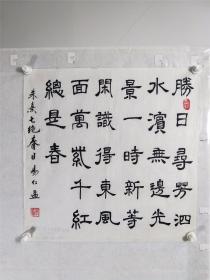 勝日尋芳泗
水濱無邊光
景一時新等
閑識得東風
面萬紫千紅
總是春
朱熹七绝春日